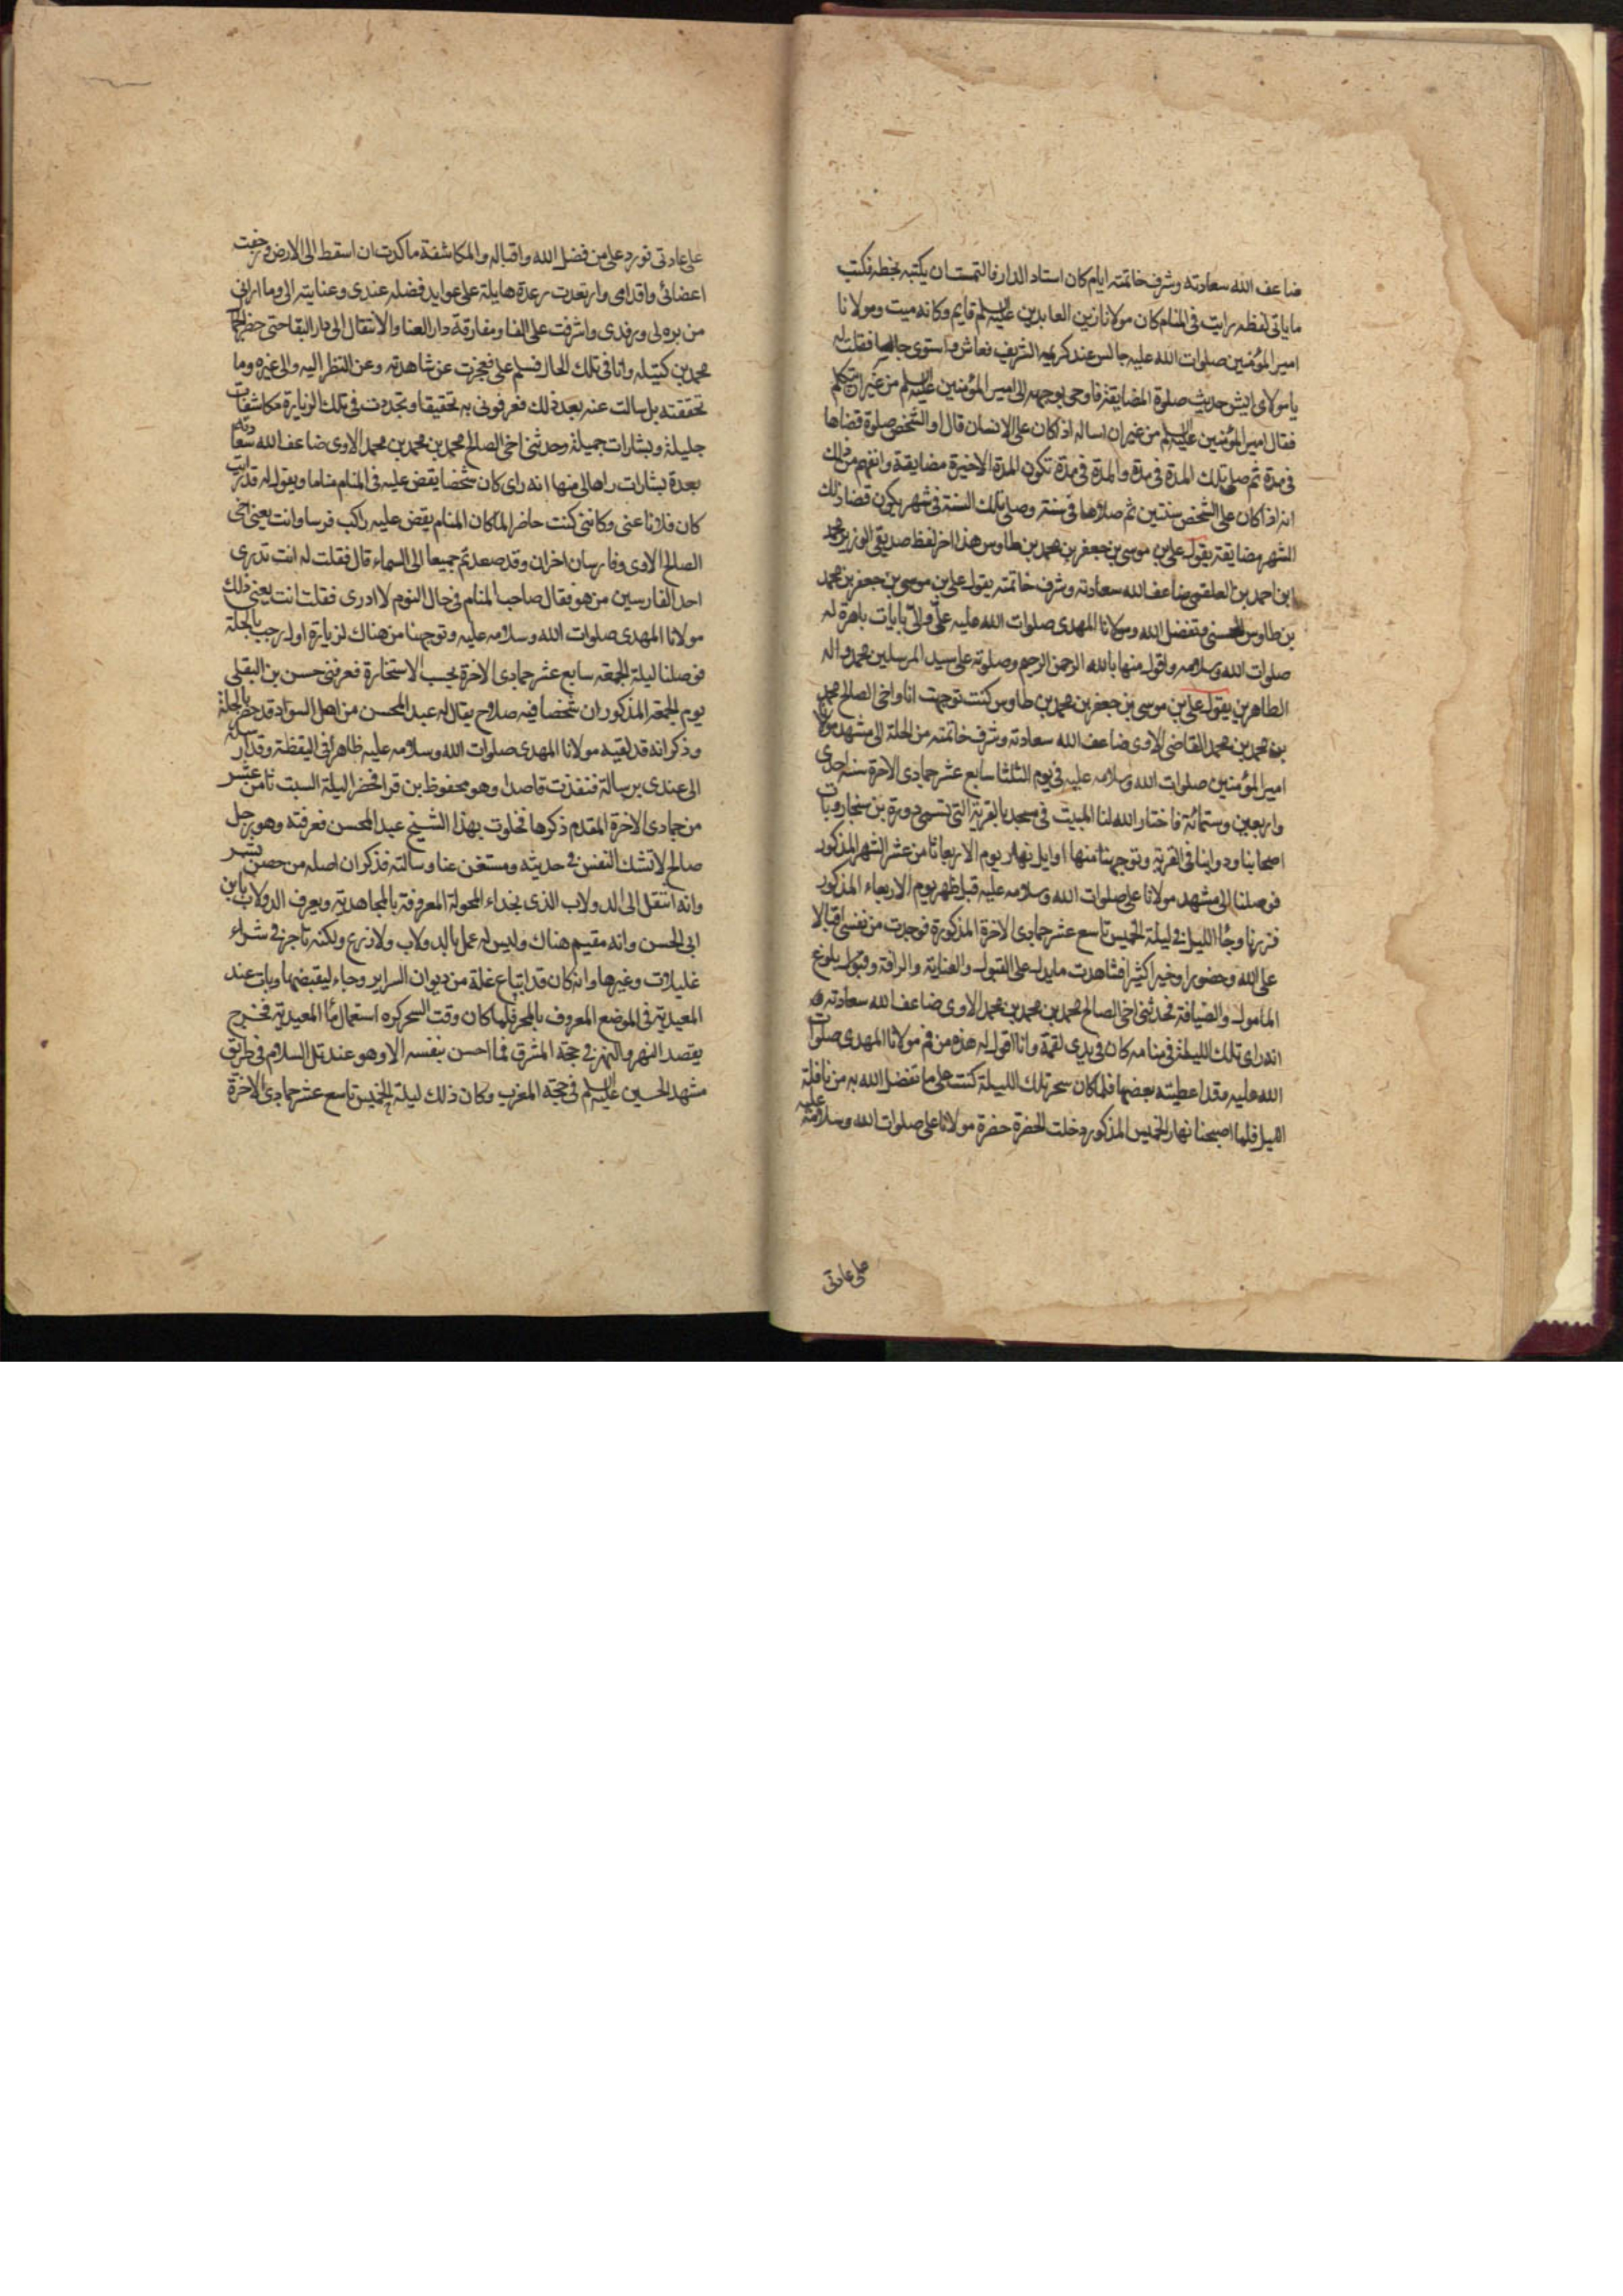 ضاعف الله سعادته وشرف خاتمته ايام كان استاد الدار فالتمست ان يكتبه بخطه فكتب
ما ياتى لفظه رايت فى المنام كان مولانا زين العابدين عليه السلم قايم وكانه ميت ومولانا
امير المؤمنين صلوات الله عليه جالس عند كريمه الشريف فعاش واستوى جالسا فقلت له
يا مولاى ايش حديث صلوة المضايقة فاوحى بوجهه الى امير المؤمنين عليه السلم من غير ان يتكلم
فقال امير المؤمنين عليه السلم من غير ان اساله اذ كان على الانسان قال او الشخص صلوة قضاها
فى مدة ثم صلى تلك المدة فى مدة والمدة فى مدة تكون المدة الاخيرة مضايقة وانفهم من ذلك
انه اذا كان على الشخص سنتين ثم صلاها فى سنة وصلى تلك السنة فى شهر يكون قضا ذلك
الشهر مضايقة يقول على بن موسى بن جعفر بن محمد بن طاوس هذا اخر لفظ صديقى الوزير محمد
ابن احمد بن العلقمى ضاعف الله سعادته وشرف خاتمته يقول على بن موسى بن جعفر بن محمد
بن طاوس الحسنى وتفضل الله ومولانا المهدى صلوات الله عليه على بايات باهرة له
صلوات الله وسلامه واقول منها بالله الرحمن الرحيم وصلوته على سيد المرسلين محمد واله
الطاهرين يقول على بن موسى بن جعفر بن محمد بن طاوس كنت توجهت انا واخى الصالح محمد
بن محمد بن محمد القاضى الاوى ضاعف الله سعادته وشرف خاتمته من الحلة الى مشهد مولانا
امير المؤمنين صلوات الله وسلامه عليه فى يوم الثلثا سابع عشر جمادى الاخرة سنه احدى
واربعين وستمائة فاختار الله لنا المبيت فى مسجد بالقرية التى تسمى دورة بن سنجار وبات
اصحابنا ودوابنا فى القرية وتوجهنا منها اوايل نهار يوم الاربعا ثامن عشر الشهر المذكور
فوصلنا الى مشهد مولانا على صلوات الله وسلامه عليه قبل ظهر يوم الاربعاء المذكور
فزرنا وجاء الليل فى ليلة الخميس تاسع عشر جمادى الاخرة المذكورة فوجدت من نفسى اقبالا
على الله وحضورا وخيرا كثيرا فشاهدت ما يدل على القبول والعناية والرافة وقبول بلوغ
المامول والضيافة فحدثنى اخى الصالح محمد بن محمد بن محمد الاوى ضاعف الله سعادته
انه راى تلك الليلة فى منامه كان فى يدى لقمة وانا اقول له هذه من فم مولانا المهدى صلوات
الله عليه وقد اعطيته بعضها فلما كان سحر تلك الليلة كنت على ما تفضل الله به من نافلة
الليل فلما اصبحنا نهار الخميس المذكور دخلت الحضرة حضرة مولانا على صلوات الله وسلامه عليه
على عادتى
على عادتى فورد على من فضل الله واقباله والمكاشفة ما كدت ان اسقط الى الارض ورجفت
اعضائى واقدامى وارتعدت رعدة هايلة على عوايد فضله عندى وعنايته الى وما ارانى
من بره لى ورفدى واشرفت على الفنا ومفارقة دار العنا والانتقال الى دار البقا حتى حضر الجمال
محمد بن كتيله وانا فى تلك الحال فسلم على فعجزت عن مشاهدته وعن النظر اليه والى غيره وما
تحققته بل سالت عنه بعد ذلك فعرفونى به تحقيقا وتجددت فى تلك الزيارة مكاشفات
جليلة وبشارات جميلة وحدثنى اخى الصالح محمد بن محمد بن محمد الاوى ضاعف الله سعادته
بعدة بشارات راها لى منها انه راى كان شخصا يقص عليه فى المنام مناما ويقول له قد رايت
كان فلانا عنى وكاننى كنت حاضرا لما كان المنام يقص عليه راكب فرسا وانت يعنى اخى
الصالح الاوى وفارسان اخران وقد صعدتم جميعا الى السماء قال فقلت له انت تدرى
احد الفارسين من هو فقال صاحب المنام فى حال النوم لا ادرى فقلت انت يعنى ذلك
مولانا المهدى صلوات الله وسلامه عليه وتوجهنا من هناك لزيارة اول رجب بالحلة
فوصلنا ليلة الجمعه سابع عشر جمادى الاخرة بحسب الاستخارة فعرفنى حسن بن البقلى
يوم الجمعة المذكور ان شخصا فيه صلاح يقال له عبد المحسن من اهل السواد قد حضر بالحلة
وذكر انه قد لقيه مولانا المهدى صلوات الله وسلامه عليه ظاهرا فى اليقظة وقد ارسله
الى عندى برسالة فنفذت قاصدا وهو محفوظ بن قرا فحضرا ليلة السبت ثامن عشر
من جمادى الاخرة المقدم ذكرها فخلوت بهذا الشيخ عبد المحسن فعرفته وهو رجل
صالح لا تشك النفس فى حديثه ومستغن عنا وسالته فذكر ان اصله من حصن بشر
وانه انتقل الى الدولاب الذى بحذاء المحولة المعروفة بالمجاهدية ويعرف الدولاب بابن
ابى الحسن وانه مقيم هناك وليس له عمل بالدولاب ولا زرع ولكنه تاجر فى شراء
غليلات وغيرها وانه كان قد ابتاع غلة من ديوان السراير وجاء ليقبضها وبات عند
المعيدية فى الموضع المعروف بالمحر فلما كان وقت السحر كره استعمال ماء المعيدية فخرج
يقصد النهر والنهر فى جهة المشرق فما احسن بنفسه الا وهو عند تل السلام فى طريق
مشهد الحسين عليه السلم فى جهة المغرب وكان ذلك ليلة الخميس تاسع عشر جمادى الاخرة